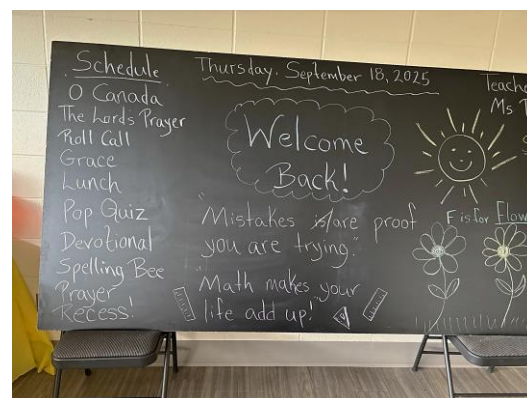 Schedule
O Canada
The Lords Prayer
Roll Call
Grace
Lunch
Pop Quiz
Devotional
Spelling Bee
Prayer
Recess!
Thursday, September 18, 2025
Welcome
Back!
"Mistakes is/are proof
you are trying."
"Math makes your
life add up!"
Ms
F is for